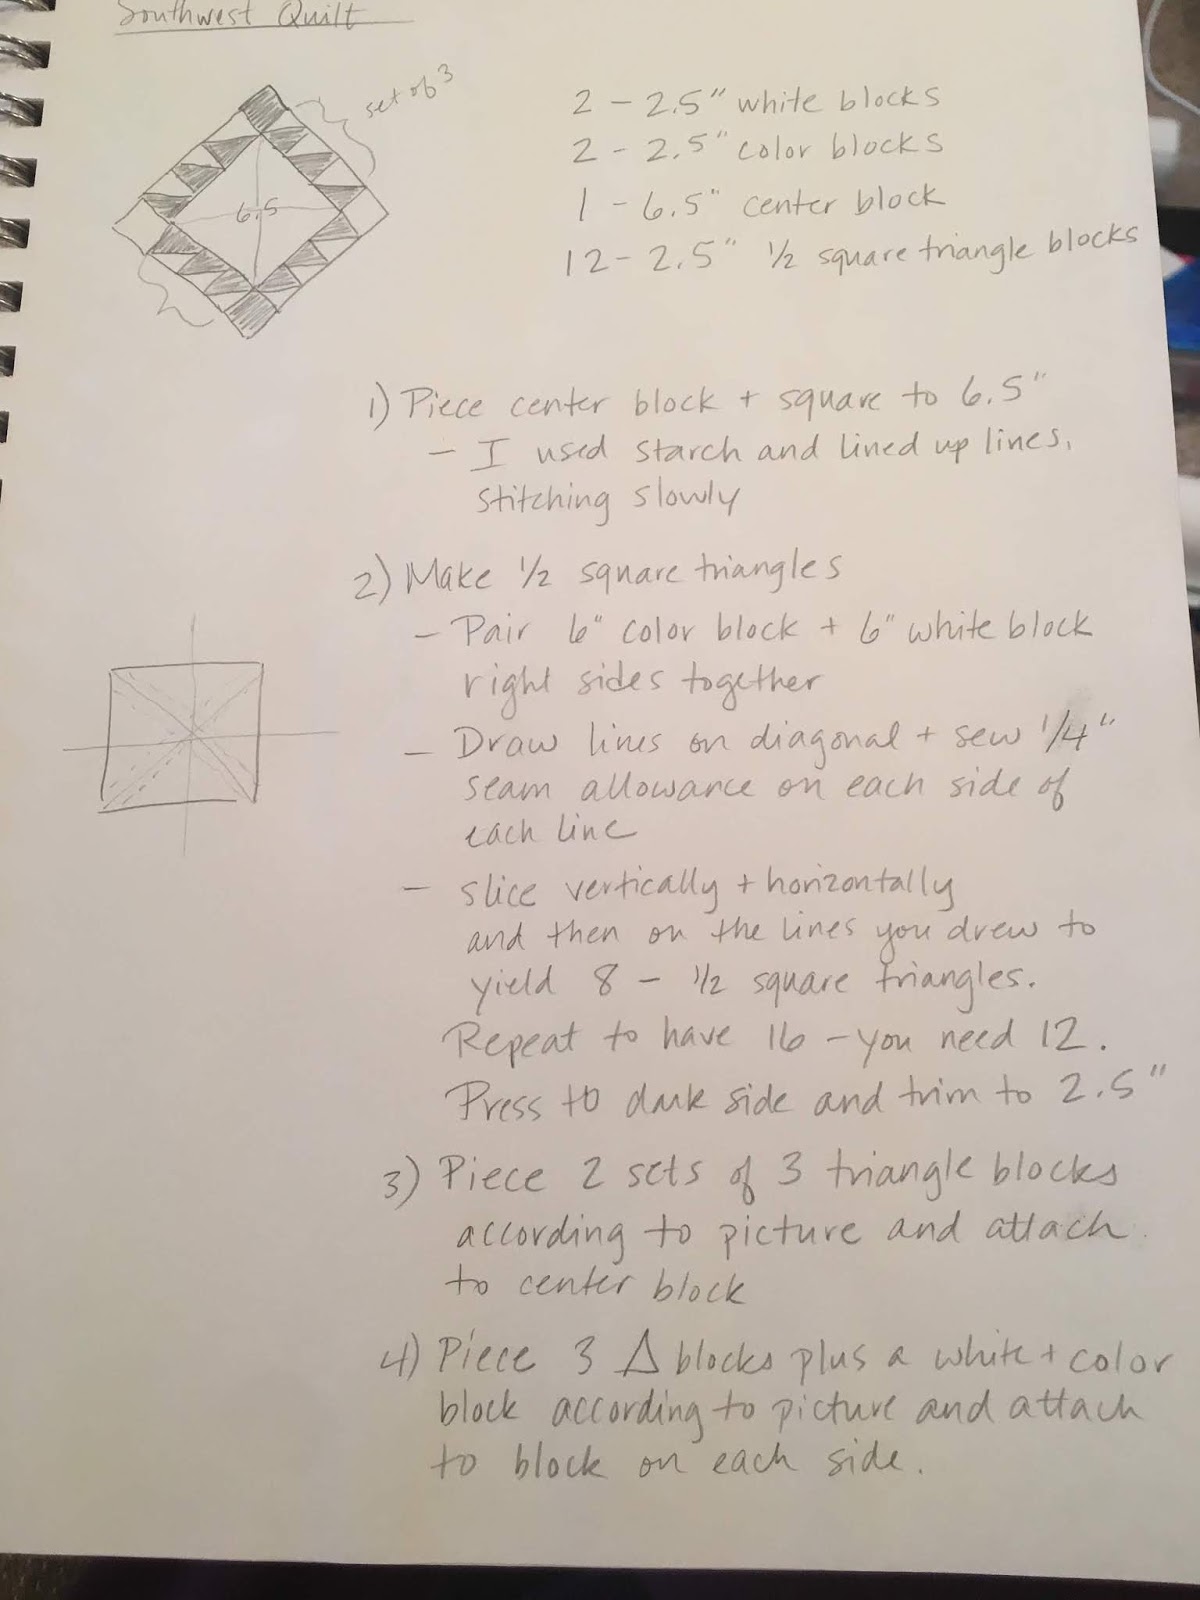 Southwest Quilt
set of 3
6.5
2 - 2.5" white blocks
2 - 2.5" color blocks
1 - 6.5" center block
12 - 2.5" 1/2 square triangle blocks
1) Piece center block + square to 6.5"
- I used starch and lined up lines,
stitching slowly
2) Make 1/2 square triangles
- Pair 6" color block + 6" white block
right sides together
- Draw lines on diagonal + sew 1/4"
seam allowance on each side of
each line
- slice vertically + horizontally
and then on the lines you drew to
yield 8 - 1/2 square triangles.
Repeat to have 16 - you need 12.
Press to dark side and trim to 2.5"
3) Piece 2 sets of 3 triangle blocks
according to picture and attach
to center block
4) Piece 3 Δ blocks plus a white + color
block according to picture and attach
to block on each side.